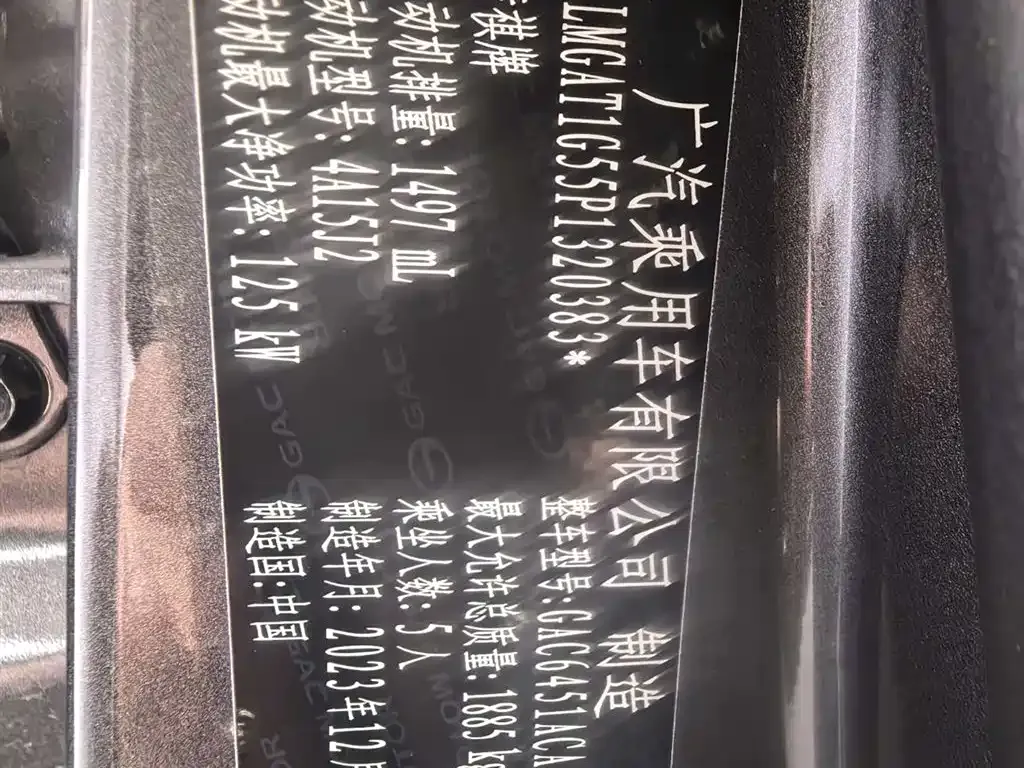 广汽乘用车有限公司 制造
LMGAT1G55P1320383*
祺牌
整车型号:GAC6451ACA
动机排量:1497 mL
最大允许总质量:1885 kg
动机型号:4A15J2
乘坐人数:5人
动机最大净功率:125 kW
制造年月:2023年12月
制造国:中国
GAC MOTOR